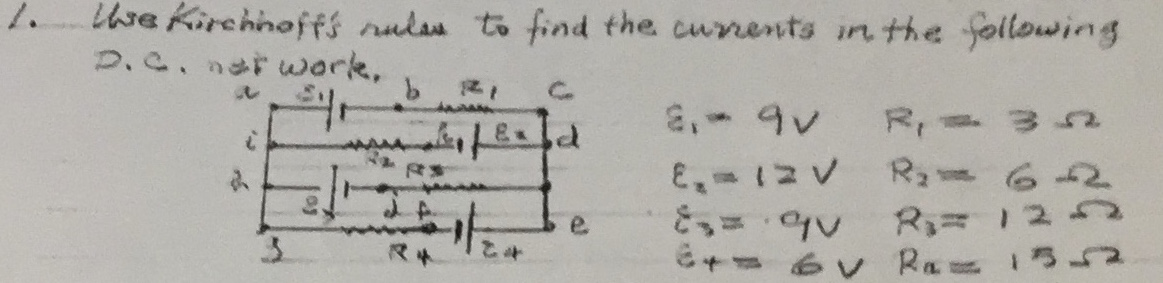 1. Use Kirchhoff's rules to find the currents in the following
D.C. network.
a ε1 b R1 c
i R2 k ε2 d
h ε3 j R3
g R4 f ε4 e
ε1 = 9V R1 = 3 Ω
ε2 = 12 V R2 = 6 Ω
ε3 = 9V R3 = 12 Ω
ε4 = 6 V R4 = 15 Ω